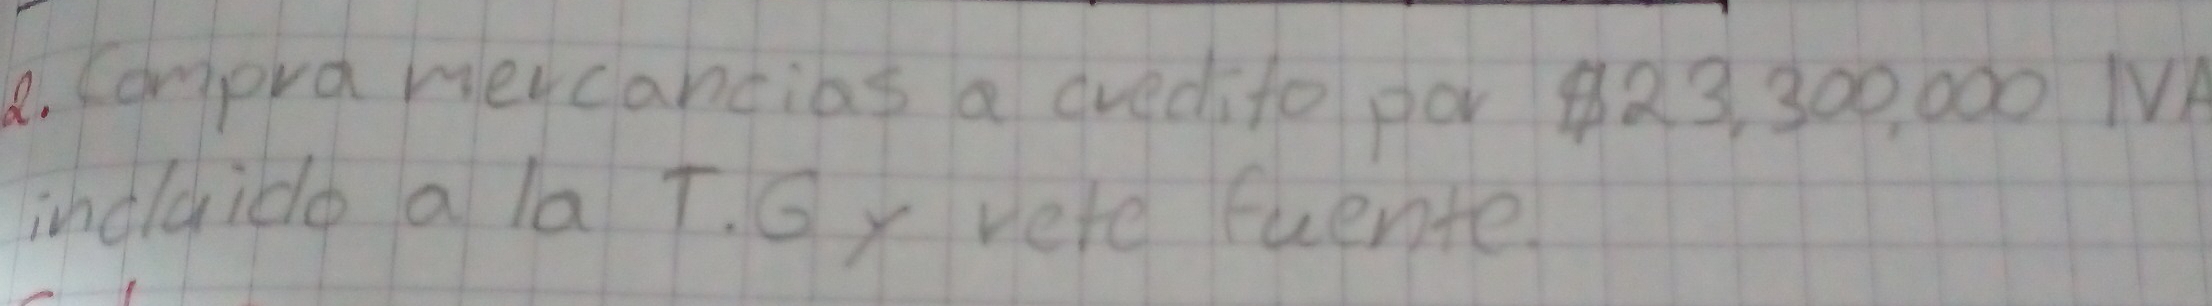 2. Compra mercancias a credito por $23,300,000 IVA
incluido a la T.G y rete fuente.